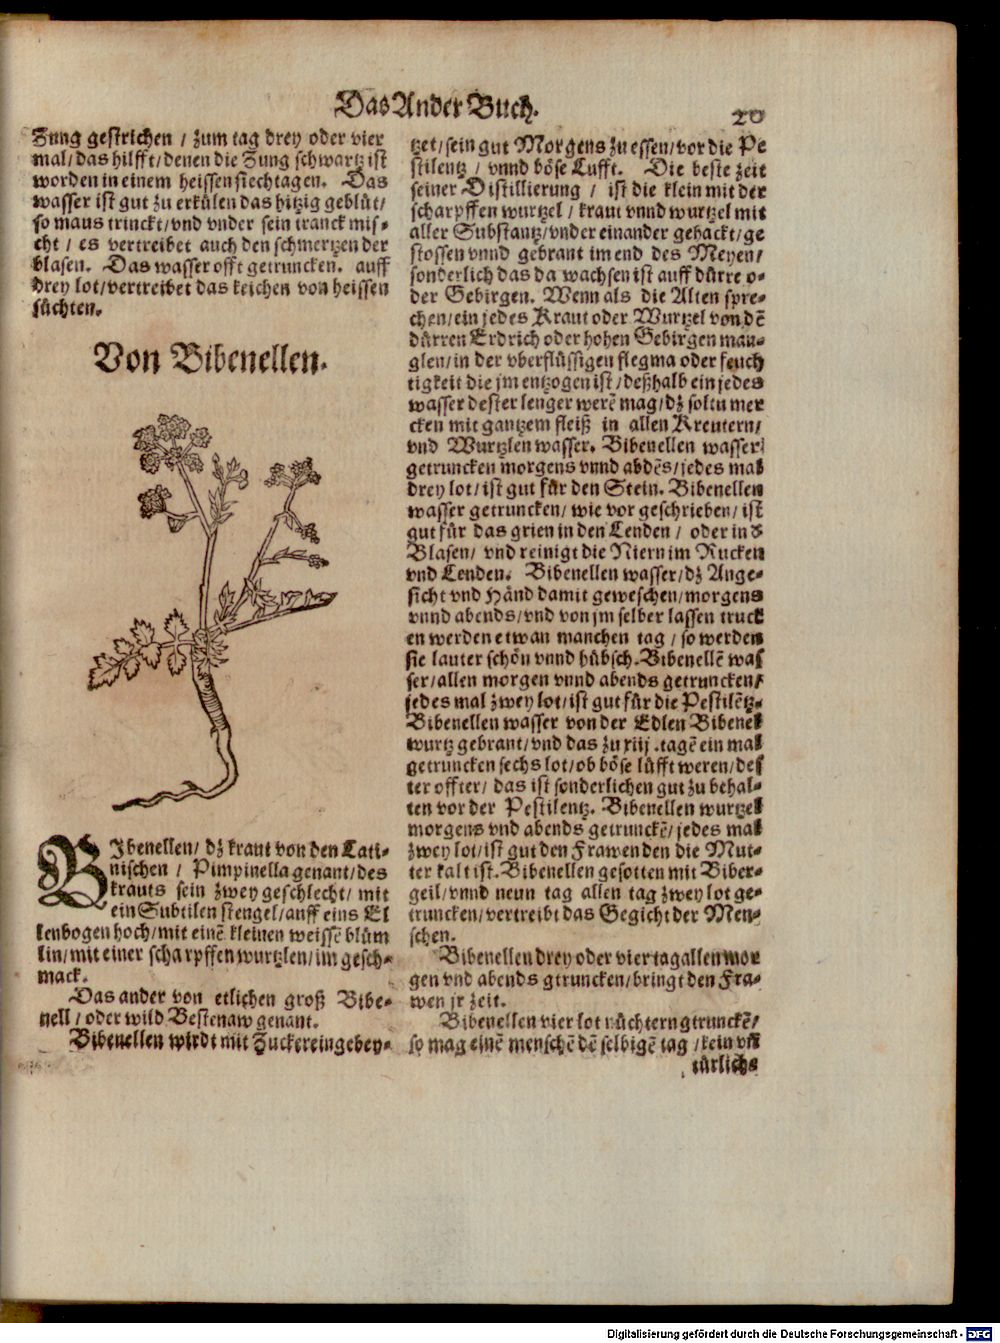 Das Ander Buch.
20
Zung gestrichen / zum tag drey oder vier
mal / das hilfft / denen die Zung schwartz ist
worden in einem heissen siechtagen. Das
wasser ist gut zu erkülen das hitzig geblüt /
so maus trinckt / vnd vnder sein tranck mis⸗
cht / es vertreibet auch den schmertzen der
blasen. Das wasser offt getruncken. auff
drey lot / vertreibet das keichen von heissen
süchten.
Von Bibenellen.
BJbenellen / dz kraut von den Lati⸗
nischen / Pimpinella genant / des
krauts sein zwey geschlecht / mit
ein Subtilen stengel / auff eins El
lenbogen hoch / mit einē kleinen weissē blüm
lin / mit einer scharpffen wurtzlen / im gesch⸗
mack.
Das ander von etlichen groß Bibe⸗
nell / oder wild Bestenaw genant.
Bibenellen wirdt mit Zucker eingebey⸗
tzet / sein gut Morgens zu essen / vor die Pe
stilentz / vnnd böse Lufft. Die beste zeit
seiner Distillierung / ist die klein mit der
scharpffen wurtzel / kraut vnnd wurtzel mit
aller Substantz / vnder einander gehackt / ge
stossen vnnd gebrant im end des Meyen /
sonderlich das da wachsen ist auff dürre o⸗
der Gebirgen. Wenn als die Alten spre⸗
chen / ein jedes Kraut oder Wurtzel von dē
dürren Erdrich oder hohen Gebirgen man⸗
glen / in der vberflüssigen flegma oder feuch
tigkeit die jm entzogen ist / deßhalb ein jedes
wasser dester lenger werē mag / dz soltu mer
cken mit gantzem fleiß in allen Kreutern /
vnd Wurtzlen wasser. Bibenellen wasser
getruncken morgens vnnd abdēs / jedes mal
drey lot / ist gut für den Stein. Bibenellen
wasser getruncken / wie vor geschrieben / ist
gut für das grien in den Lenden / oder in d
Blasen / vnd reinigt die Niern im Rucken
vnd Lenden. Bibenellen wasser / dz Ange⸗
sicht vnd Händ damit geweschen / morgens
vnnd abends / vnd von jm selber lassen truck
en werden etwan manchen tag / so werden
sie lauter schön vnnd hübsch. Bibenellē was
ser / allen morgen vnnd abends getruncken /
jedes mal zwey lot / ist gut für die Pestilētz.
Bibenellen wasser von der Edlen Bibenel
wurtz gebrant / vnd das zu xiij. tagē ein mal
getruncken sechs lot / ob böse lüfft weren / des
ter offter / das ist sonderlichen gut zu behal⸗
ten vor der Pestilentz. Bibenellen wurtzel
morgens vnd abends getrunckē / jedes mal
zwey lot / ist gut den Frawen den die Mut⸗
ter kalt ist. Bibenellen gesotten mit Biber⸗
geil / vnnd neun tag allen tag zwey lot ge⸗
truncken / vertreibt das Gegicht der Men⸗
schen.
Bibenellen drey oder vier tag allen mor
gen vnd abends gtruncken / bringt den Fra⸗
wen jr zeit.
Bibenellen vier lot nüchtern gtrunckē /
so mag einē menschē dē selbigē tag / kein vn
türlichs
Digitalisierung gefördert durch die Deutsche Forschungsgemeinschaft - DFG